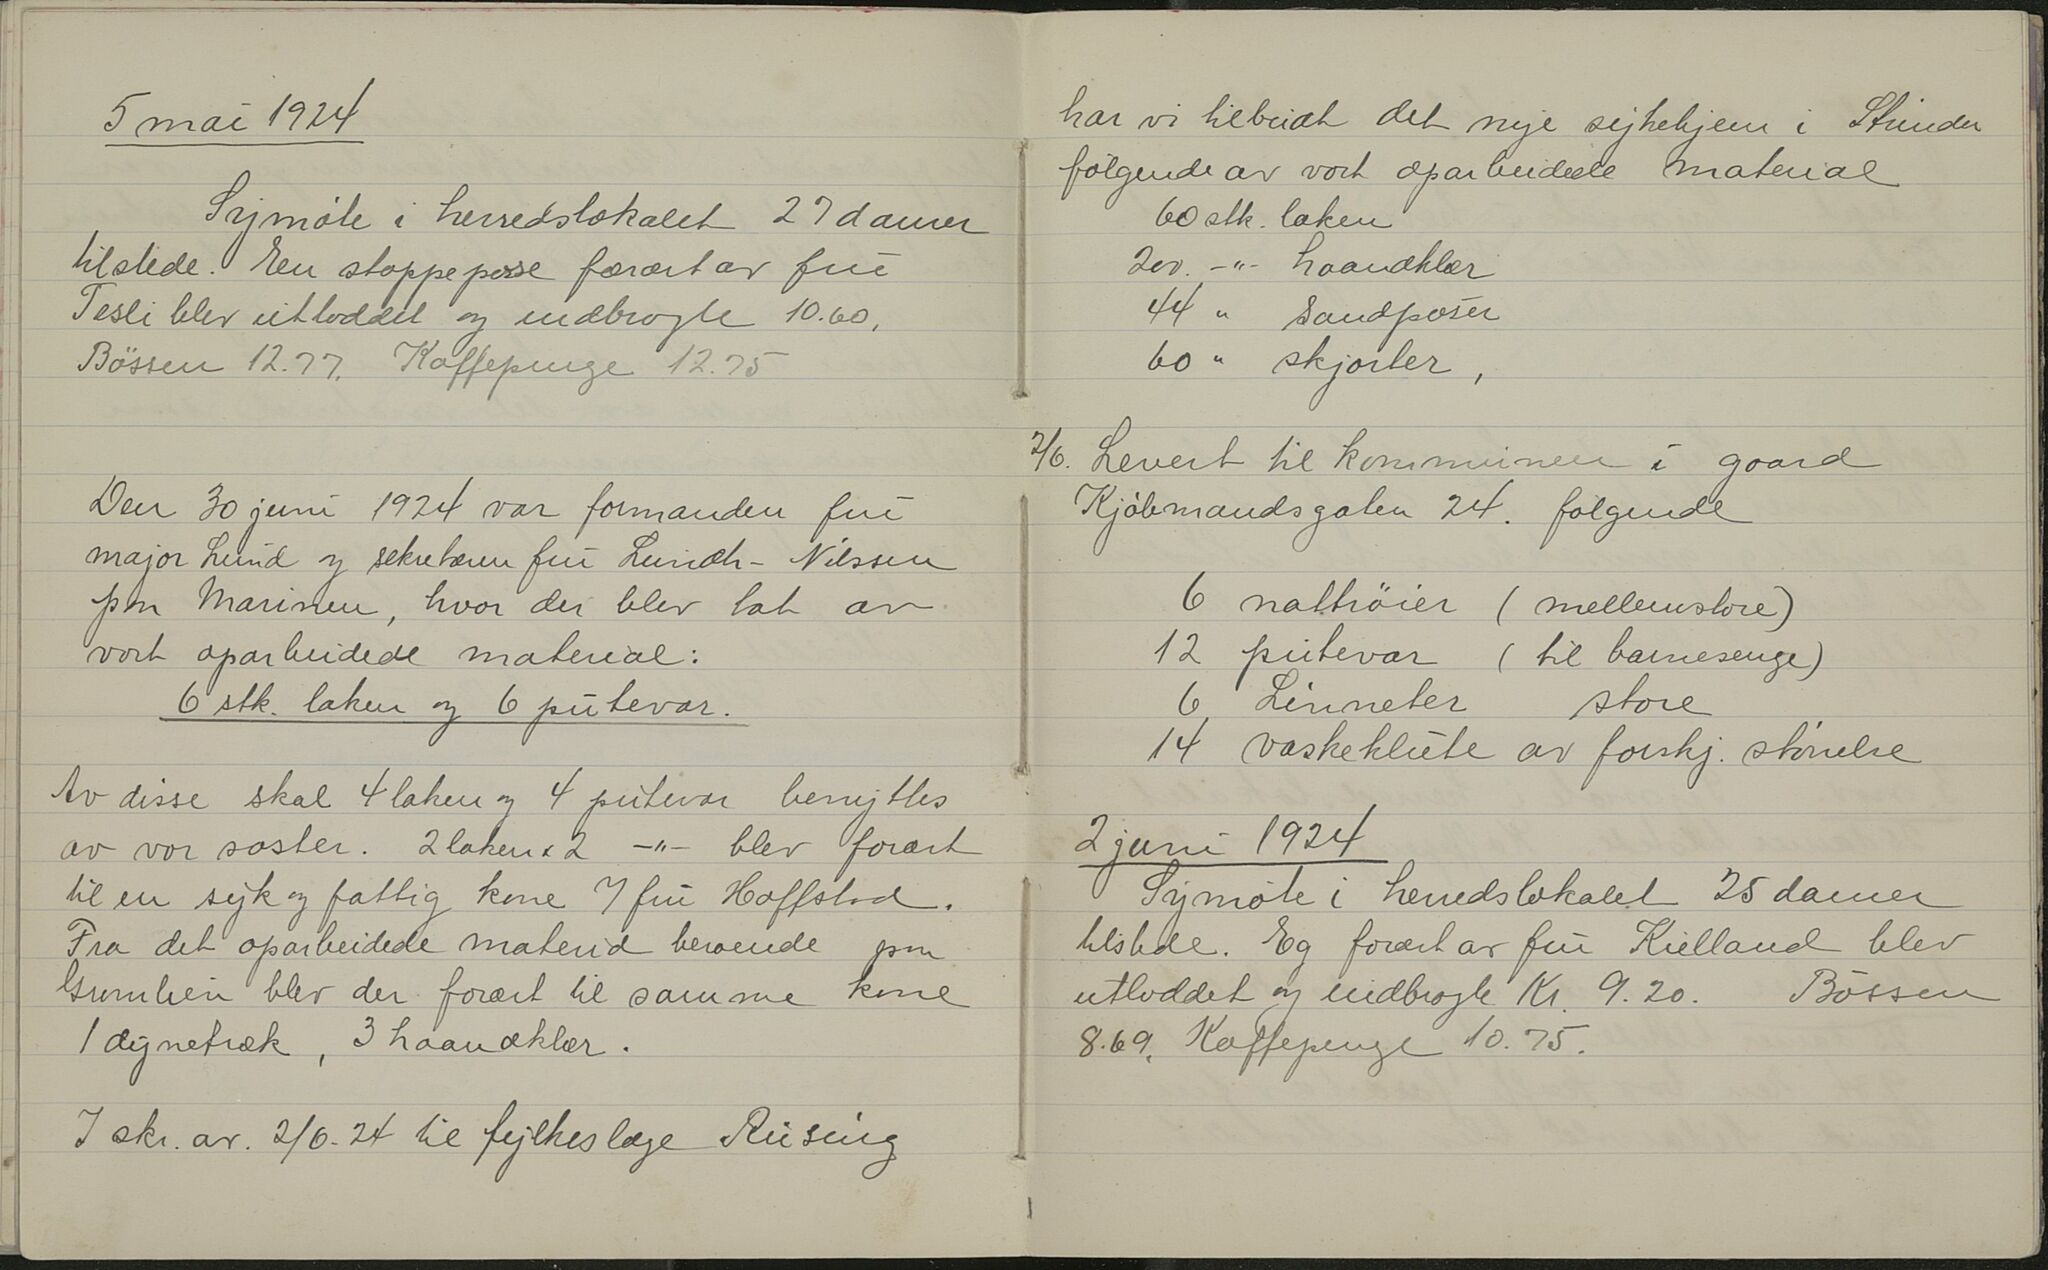 5 mai 1924
Symöte i herredslokalet 27 damer
tilstede. En stoppepose forært av frú
Tesli blev utloddet og indbragte 10.60,
Bössen 12.77. Kaffepenge 12.75
Den 30 juni 1924 var formanden frú
major Lund og sekretæren frú Lundh-Nilssen
paa Marinen, hvor der blev tat av
vort oparbeidede material:
6 stk. laken og 6 putevar.
Av disse skal 4 laken og 4 putevar benyttes
av vor søster. 2 laken x 2 -"- blev forært
til en syk og fattig kone 7 frú Hoffstad.
Fra det oparbeidede material beroende paa
blev der forært til samme kone
1 dynetræk, 3 haandklær.
I skr. av. 2/6-24 til fylkeslæge Riising
har vi tilbudt det nye sykehjem i Strinden
følgende av vort oparbeidede material
60 stk. laken
200. -"- haandklær
44 " Sandposer
60 " skjorter,
2/6. Levert til kommunen i gaard
Kjöbmandsgaten 24. følgende
6 nattröier (mellemstore)
12 putevar (til barnesenge)
6 Linneter store
14 vaskeklute av forskj. störrelse
2 juni 1924
Symöte i herredslokalet 25 damer
tilstede. Eg forært av frú Kielland blev
utloddet og indbragte Kr. 9.20. Bössen
8.69. Kaffepenge 10.75.